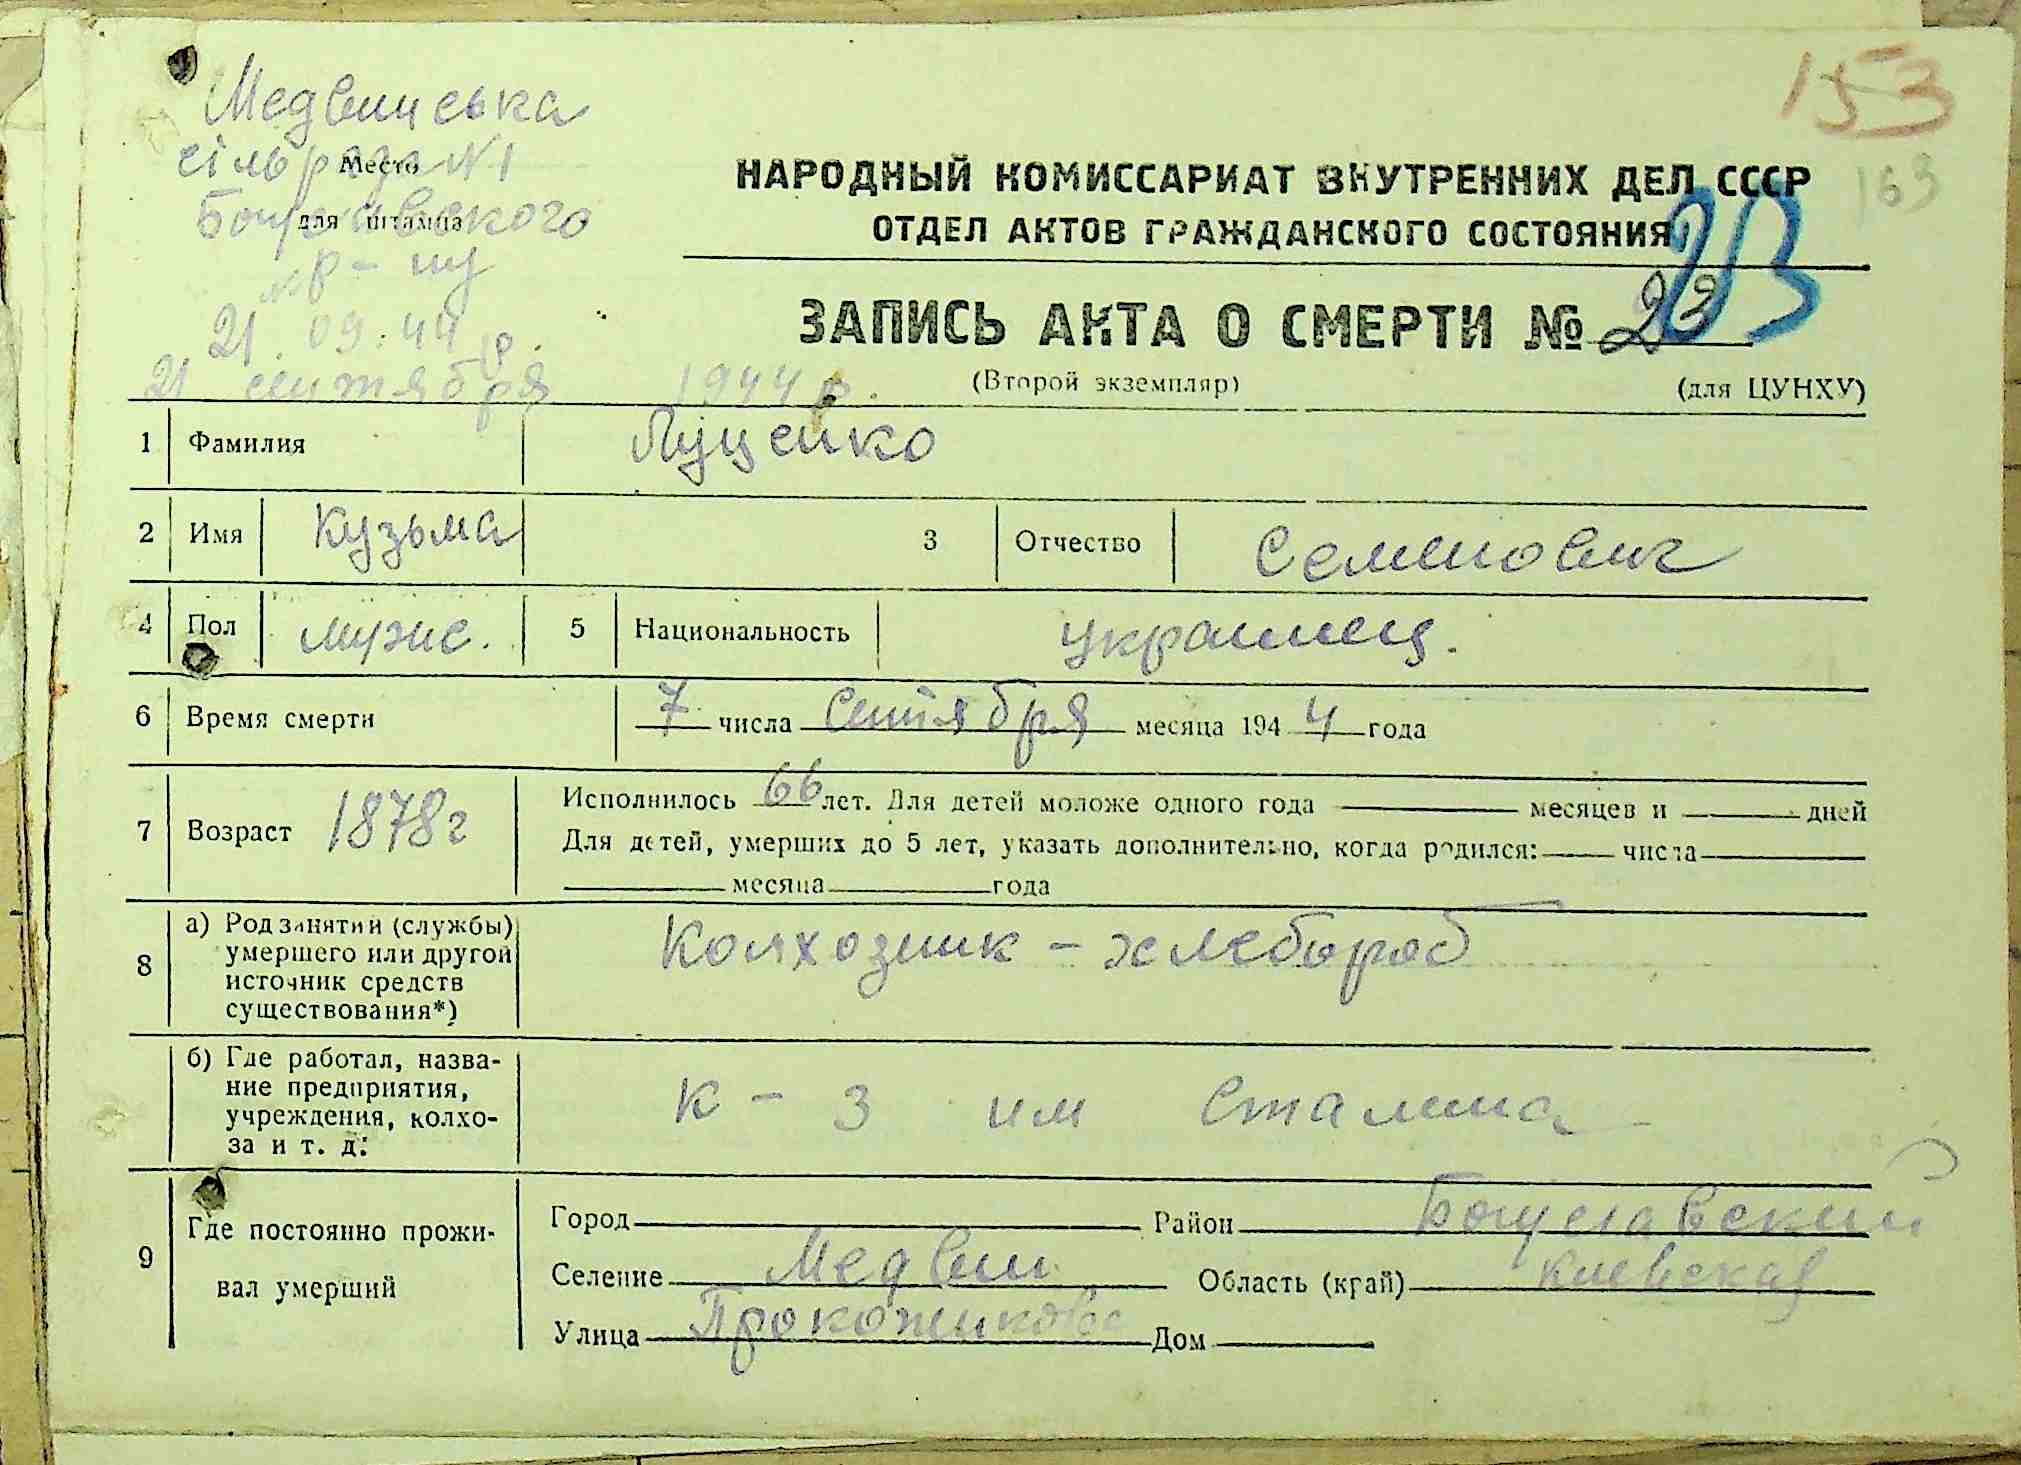 153
163
Медвинська
сільрада N1
Место
Богуславського
для штампа
р-ну
21.09.44 р.
21 сентября 1944 р.
НАРОДНЫЙ КОМИССАРИАТ ВНУТРЕННИХ ДЕЛ СССР
ОТДЕЛ АКТОВ ГРАЖДАНСКОГО СОСТОЯНИЯ
ЗАПИСЬ АКТА О СМЕРТИ №
(Второй экземпляр) (для ЦУНХУ)
1 Фамилия Луценко
2 Имя Кузьма 3 Отчество Семенович
4 Пол мужс. 5 Национальность украинец.
6 Время смерти 7 числа Сентября месяца 1944 года
7 Возраст 1878г Исполнилось 66 лет. Для детей моложе одного года месяцев и дней
Для детей, умерших до 5 лет, указать дополнительно, когда родился: числа
месяца года
8 а) Род занятий (службы)
умершего или другой
источник средств
существования*)
Колхозник - хлебороб
б) Где работал, назва-
ние предприятия,
учреждения, колхо-
за и т. д:
к-з им Сталина
9 Где постоянно прожи-
вал умерший
Город Район Богуславский
Селение Медвин Область (край) Киевская
Улица Дом